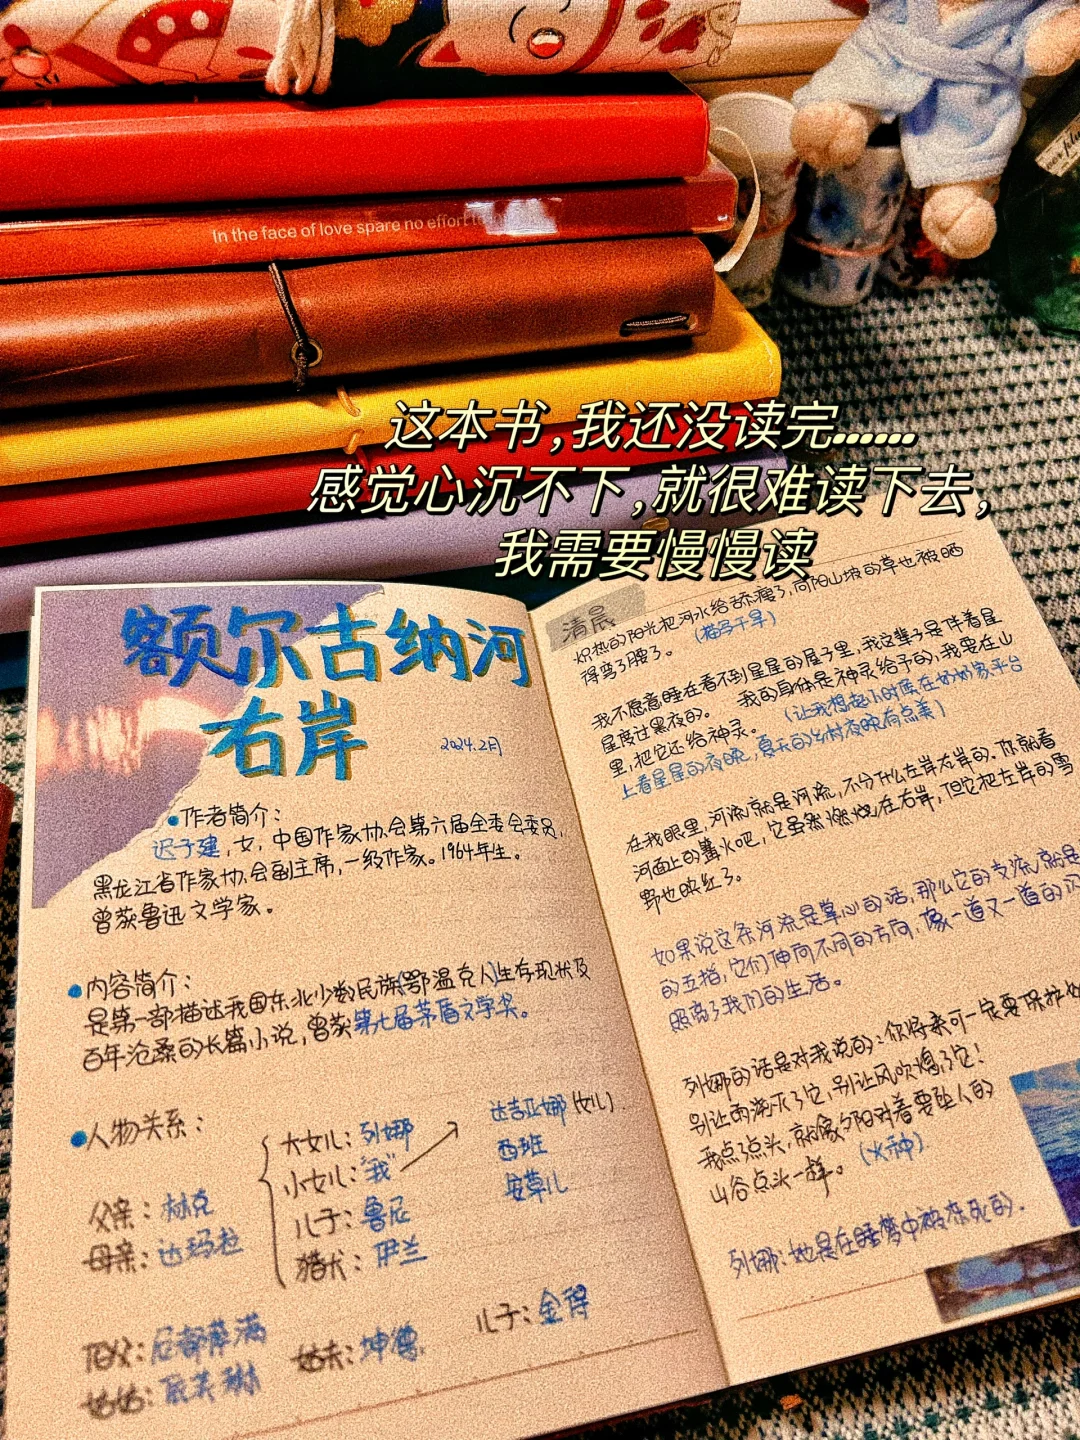 In the face of love spare no effort
这本书,我还没读完......
感觉心沉不下,就很难读下去,
我需要慢慢读
额尔古纳河
右岸
2024.2月
作者简介:
迟子建,女,中国作家协会第六届全委会委员,
黑龙江省作家协会副主席,一级作家。1964年生。
曾获鲁迅文学家。
内容简介:
是第一部描述我国东北少数民族(鄂温克人)生存现状及
百年沧桑的长篇小说,曾获第七届茅盾文学奖。
人物关系:
父亲:林克
母亲:达玛拉
大女儿:列娜
小女儿:"我"
儿子:鲁尼
猎犬:伊兰
达吉亚娜(女儿)
西班
安草儿
伯父:尼都萨满
姑姑:依芙琳
姑夫:坤德
儿子:金得
清晨
炽热的阳光把河水给舔瘦了,向阳山坡的草也被晒
得弯了腰了。(描写干旱)
我不愿意睡在看不到星星的屋子里,我这辈子是伴着星
星度过黑夜的。 我的身体是神灵给予的,我要在山
里,把它还给神灵。(让我想起小时候在奶奶家平台
上看星星的夜晚,夏天的乡村夜晚有点美)
在我眼里,河流就是河流,不分什么左岸右岸的。你就看
河面上的篝火吧,它虽然燃烧在右岸,但它把左岸的雪
野也映红了。
如果说这条河流是掌心的话,那么它的支流就是
的五指,它们伸向不同的方向,像一道又一道的闪
照亮了我们的生活。
列娜的话是对我说的:你将来可一定要保护好
别让雨浇灭了它,别让风吹熄了它!
我点了点头,就像夕阳对着要坠入的
山谷点头一样。(火种)
列娜:她是在睡梦中被冻死的.